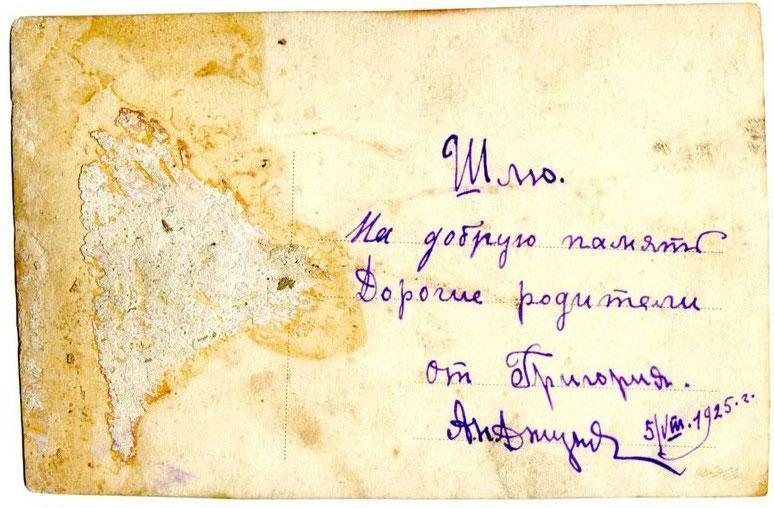 Шлю.
На добрую память
Дорогие родители
от Григория.
5/VIII.1925.г.